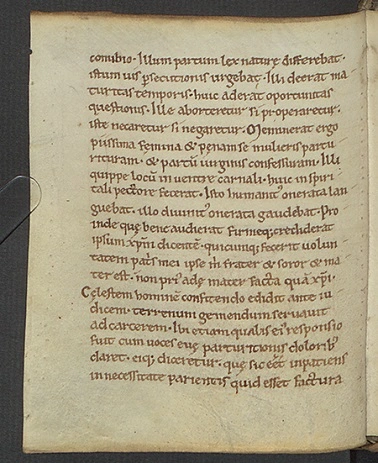 conubio · Illum partum lex naturę differebat ·
istum uis p̱secutionis urgebat · Illi deerat ma
turitas temporis · huic aderat oportunitas
questionis · Ille aborteretur si pro-peraretur ·
iste necaretur si negaretur · Meminerat ergo
piissima femina & penam se mulieris partu
rituram · & partū uirginis confessuram · Illi
quippe locū in uentre carnali · huic in spiri
tali pectore fecerat · Isto humanit᷒ onerata lan
guebat · illo diuinit᷒ onerata gaudebat · Pro
inde quę bene audierat firmeq; crediderat
ipsum xp̄m dicentē · quicunq; fecerit uolun
tatem pat̄s mei ipse m̄ frater & soror & ma
ter est · non pri᷒ adę mater facta quā xp̄i ·
Cęlestem hominē confitendo edidit ante iu
dicem · terrenum gemendum seruauit
ad carcerem · Ibi etiam qualis ei᷒ responsio
fuit cum uoces euę parturitionis dolorib᷒
daret · eiq; diceretur · quę sic eēt inpatiens
in necessitate parientis quid esset factura